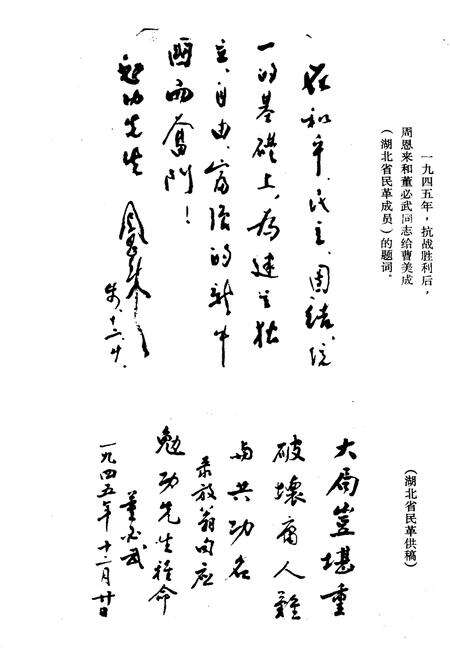 一九四五年，抗战胜利后，
周恩来和董必武同志给曹美成
（湖北省民革成员）的题词。
在和平、民主、團结、统
一的基礎上，为建立独
立、自由、富强的新中
國而奮鬥！
勉功先生
周恩来
十二、廿.
（湖北省民革供稿）
大局豈堪重
破壞庸人難
与共功名
录放翁句应
勉功先生雅命
董必武
一九四五年十二月廿日